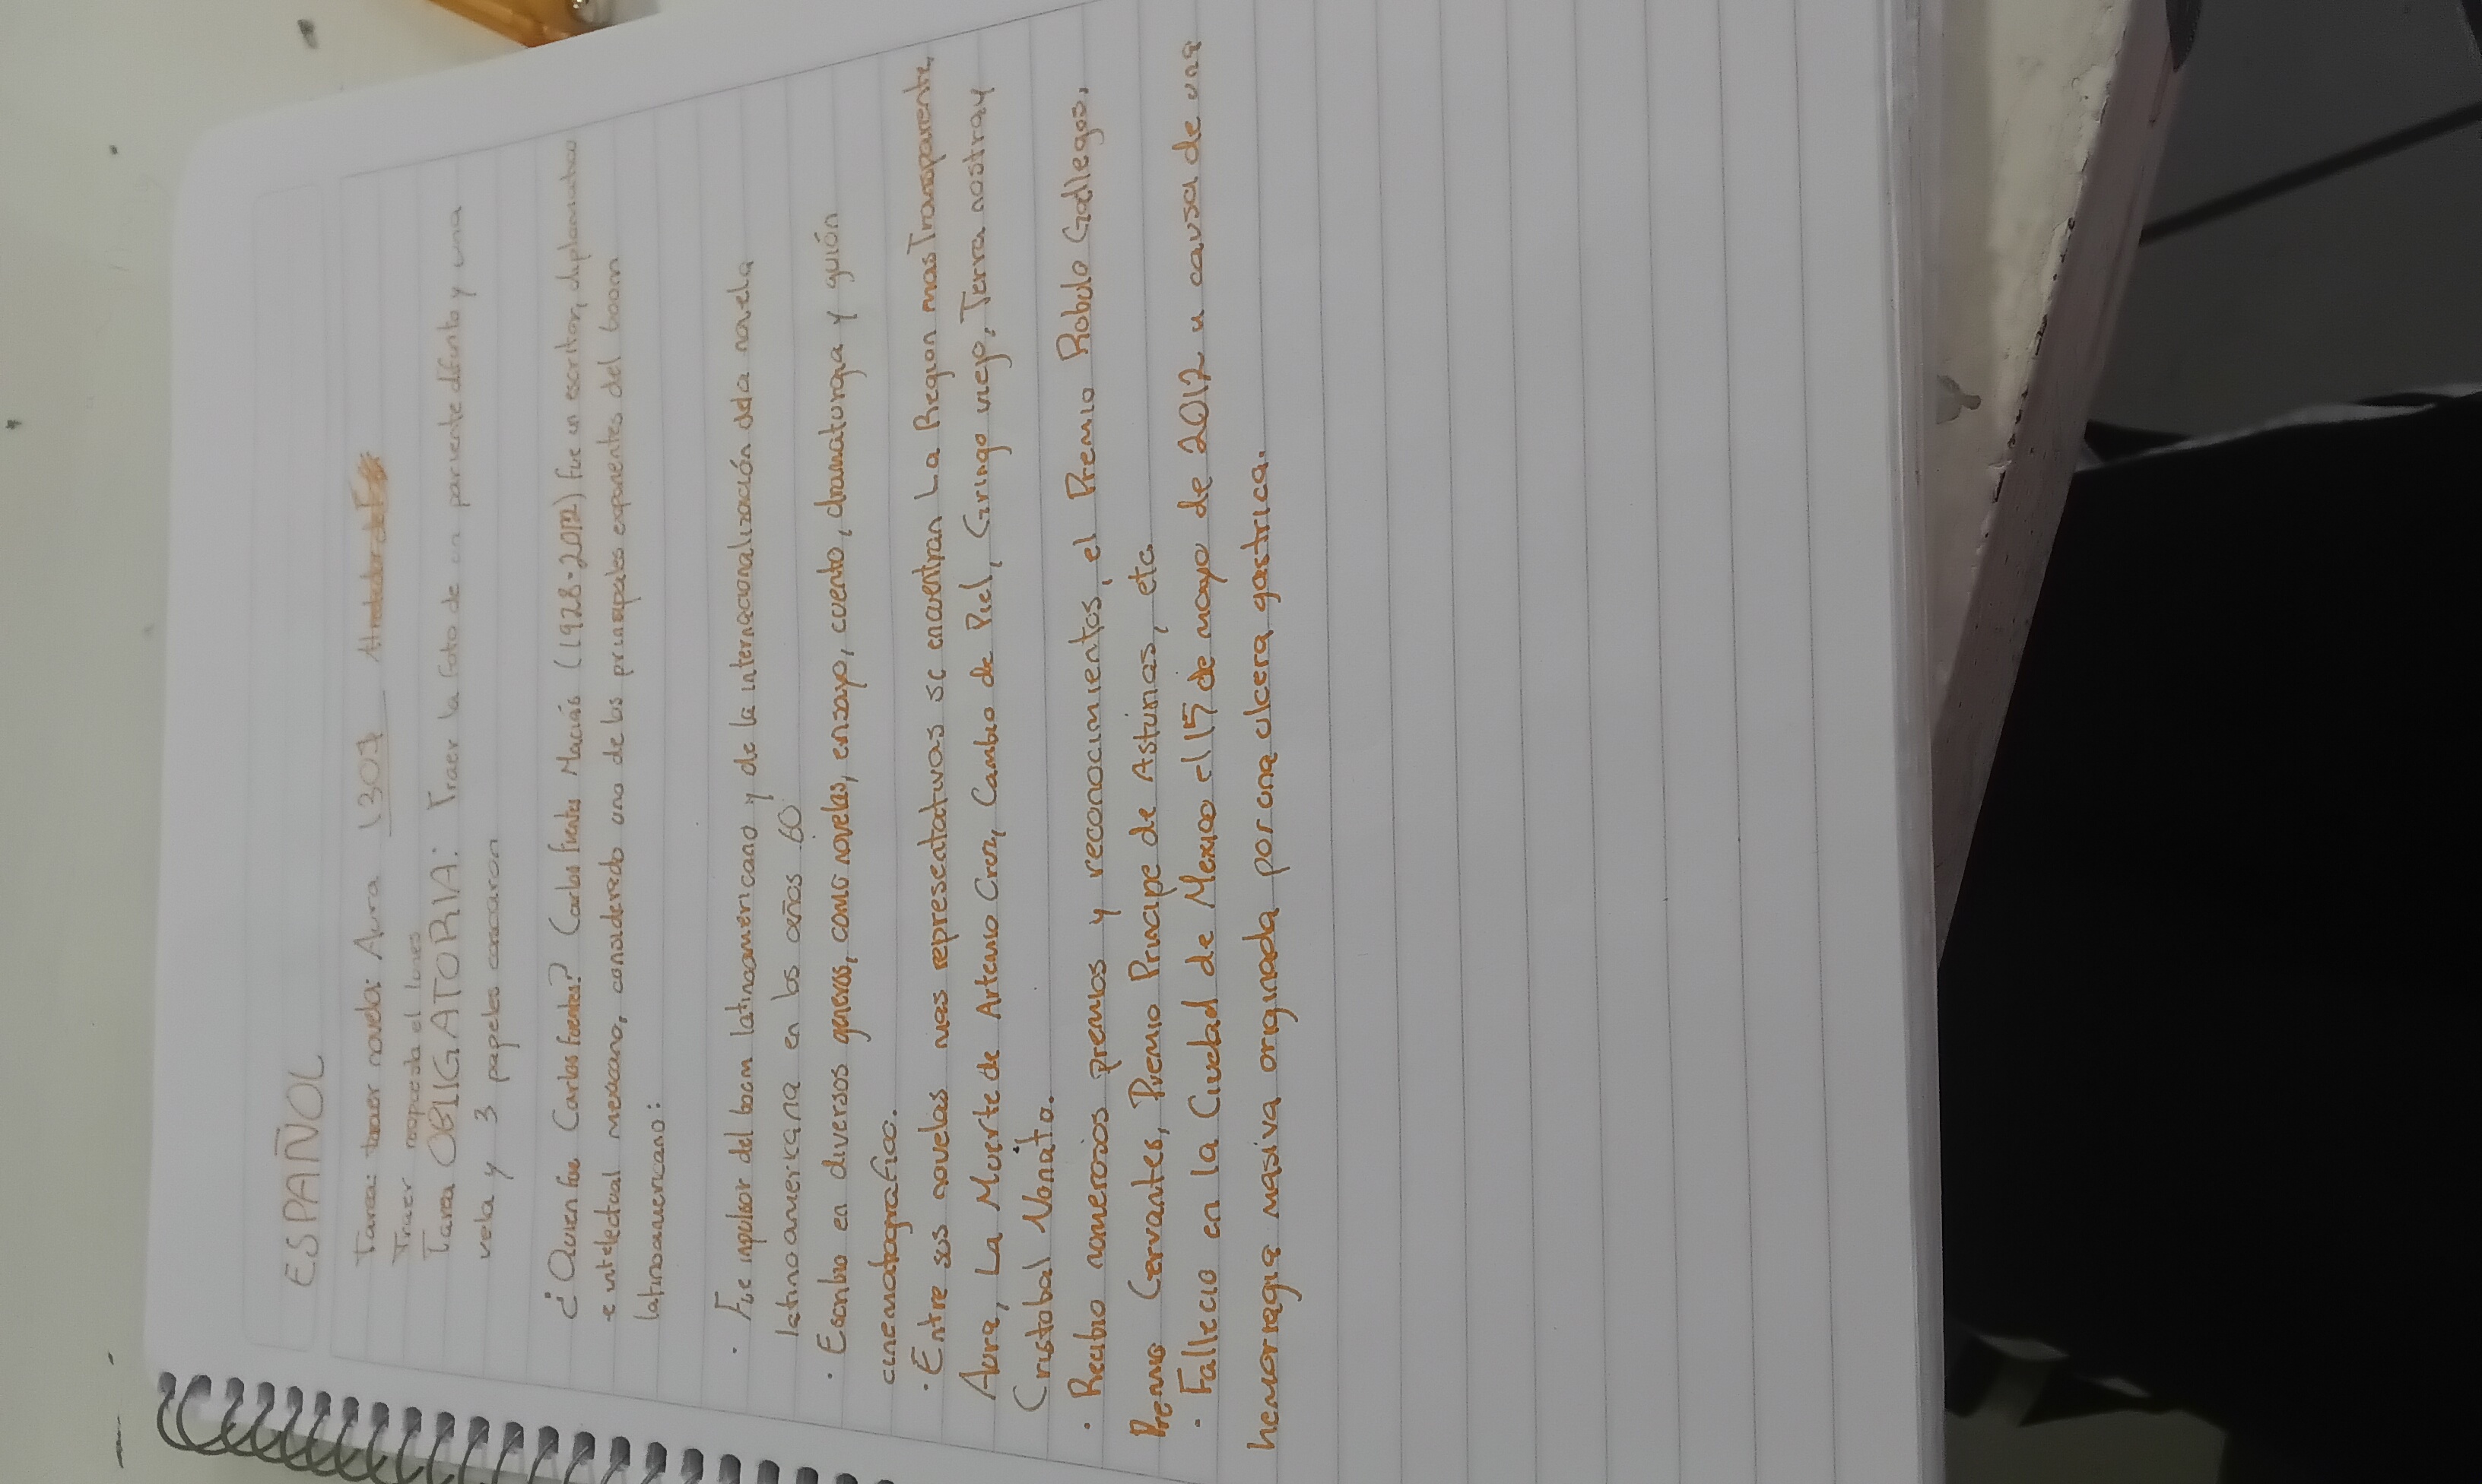 ESPAÑOL
Tarea: traer novela: Aura 1303
Traer respuesta el lunes
Tarea OBLIGATORIA: Traer la foto de un pariente difunto y una
vela y 3 papeles cascaron
¿Quien fue Carlos Fuentes? Carlos Fuentes Macías (1928-2012) fue un escritor, diplomatico
e intelectual mexicano, considerado uno de los principales exponentes del boom
latinoamericano:
· Fue inpulsor del boom latinoamericano y de la internacionalización dela novela
latinoamerikana en los años 60
· Escribio en diversos generos, como novelas, ensayo, cuento, dramaturgia y guión
cinematografico.
· Entre sus novelas mas representativas se encuentran La Region mas Transparente,
Aura, La Muerte de Artemio Cruz, Cambio de Piel, Gringo viejo, Terra nostra y
Cristobal Nonato.
· Recibio numerosos premios y reconocimientos, el Premio Robulo Gallegos,
Premio Cervantes, Premio Principe de Asturias, etc.
· Fallecio en la Ciudad de Mexico el 15 de mayo de 2012 a causa de una
hemorragia masiva originada por una ulcera gastrica.